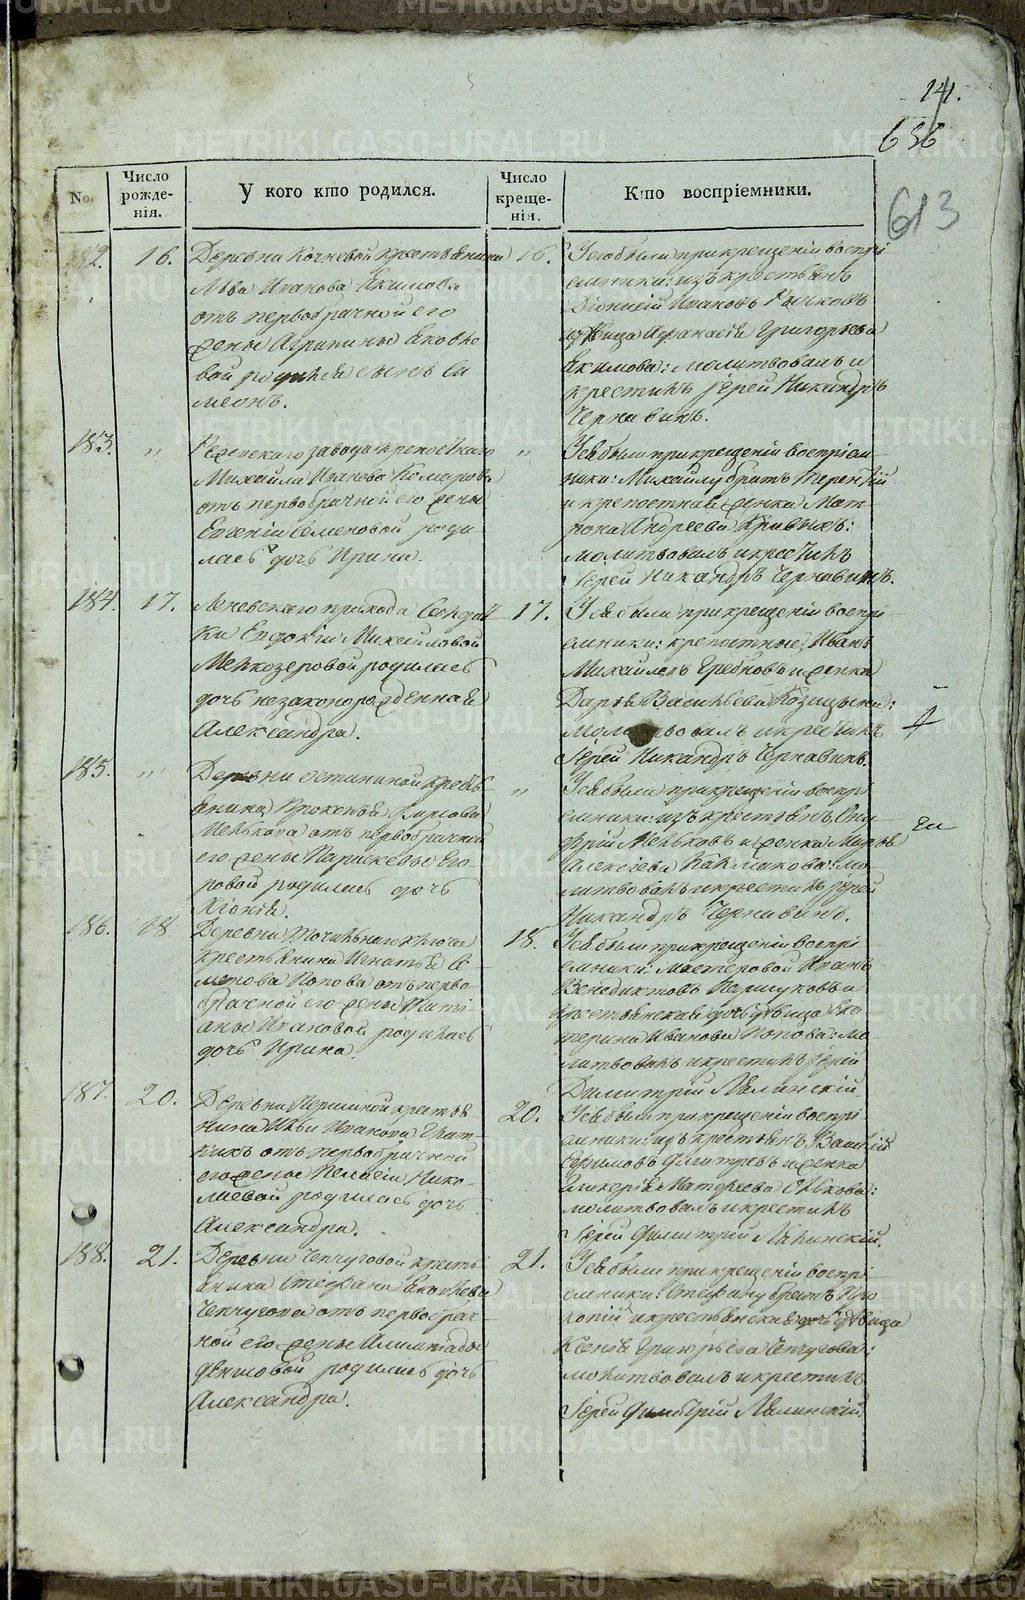 141.
636
613
No.
Число рожде-нія.
У кого кто родился.
Число креще-нія.
Кто воспріемники.
182.
16.
Деревни Кочневой крестьянина
Льва Иванова Екимова
отъ первобрачной его
жены Агрипины Яковле
вой родился сынъ Си
меонъ.
16.
У сего были при крещеніи воспрі
емники: изъ крестьянъ
Діонисій Ивановъ
и девица Афанасія Григорьева
Екимова: молитвовалъ и
крестилъ Іерей Никандръ
Чернавинъ.
183.
"
Режевскаго завода крепостнаго
Михайла Иванова Комарова
отъ первобрачной его жены
Евгеніи Семеновой роди
лась дочь Ирина.
"
У сей были при крещеніи воспріем
ники: Михайлу братъ Терентій
и крепостная женка Мат
рона Андреева Кривыхъ:
молитвовалъ и крестилъ
Іерей Никандръ Чернавинъ.
184.
17.
Леневскаго прихода Солдат
ки Евдокіи Михайловой
Мелкозеровой родилась
дочь незаконорожденная
Александра.
17.
У сей были при крещеніи воспрі
емники: крепостные Иванъ
Михайловъ Гребновъ и женка
Дарья Васильева Козицына:
молитвовалъ и крестилъ
Іерей Никандръ Чернавинъ.
185.
"
Деревни Останиной кресть
янина Прокопья Фирсова
Менькова отъ первобрачной
его жены Параскевы Его
ровой родилась дочь
Хіонія.
"
У сей были при крещеніи воспрі
емники: изъ крестьянъ Ону
фрій Меньковъ и женка Марѳа
Алексіева Калмакова: мо
литвовалъ и крестилъ Іерей
Никандръ Чернавинъ.
186.
18
Деревни Точильнаго ключа
крестьянина Игнатья Се
менова Попова отъ перво
брачной его жены Тати
аны Ивановой родилась
дочь Ирина.
18.
У сей были при крещеніи воспрі
емники: мастеровой Иванъ
Венедиктовъ Паршуковъ и
крестьянская дочь девица Ека
терина Иванова Попова: мо
литвовалъ и крестилъ Іерей
Димитрій
187.
20.
Деревни Першиной крестья
нина Ильи Иванова
отъ первобрачной
его жены Пелагіи Нико
лаевой родилась дочь
Александра.
20.
У сей были при крещеніи воспрі
емники: изъ крестьянъ Василій
Ефимовъ и женка
Гликерія Матфеева
молитвовалъ и крестилъ
Іерей Димитрій
188.
21.
Деревни Чепчуговой кресть
янина Стефана Яковлева
Чепчугова отъ первобрач
ной его жены
Денисовой родилась дочь
Александра.
21.
У сей были при крещеніи воспрі
емники: Стефану братъ Про
копій и крестьянская дочь девица
Ксенья Григорьева Чепчугова:
молитвовалъ и крестилъ
Іерей Димитрій
METRIKI.GASO-URAL.RU